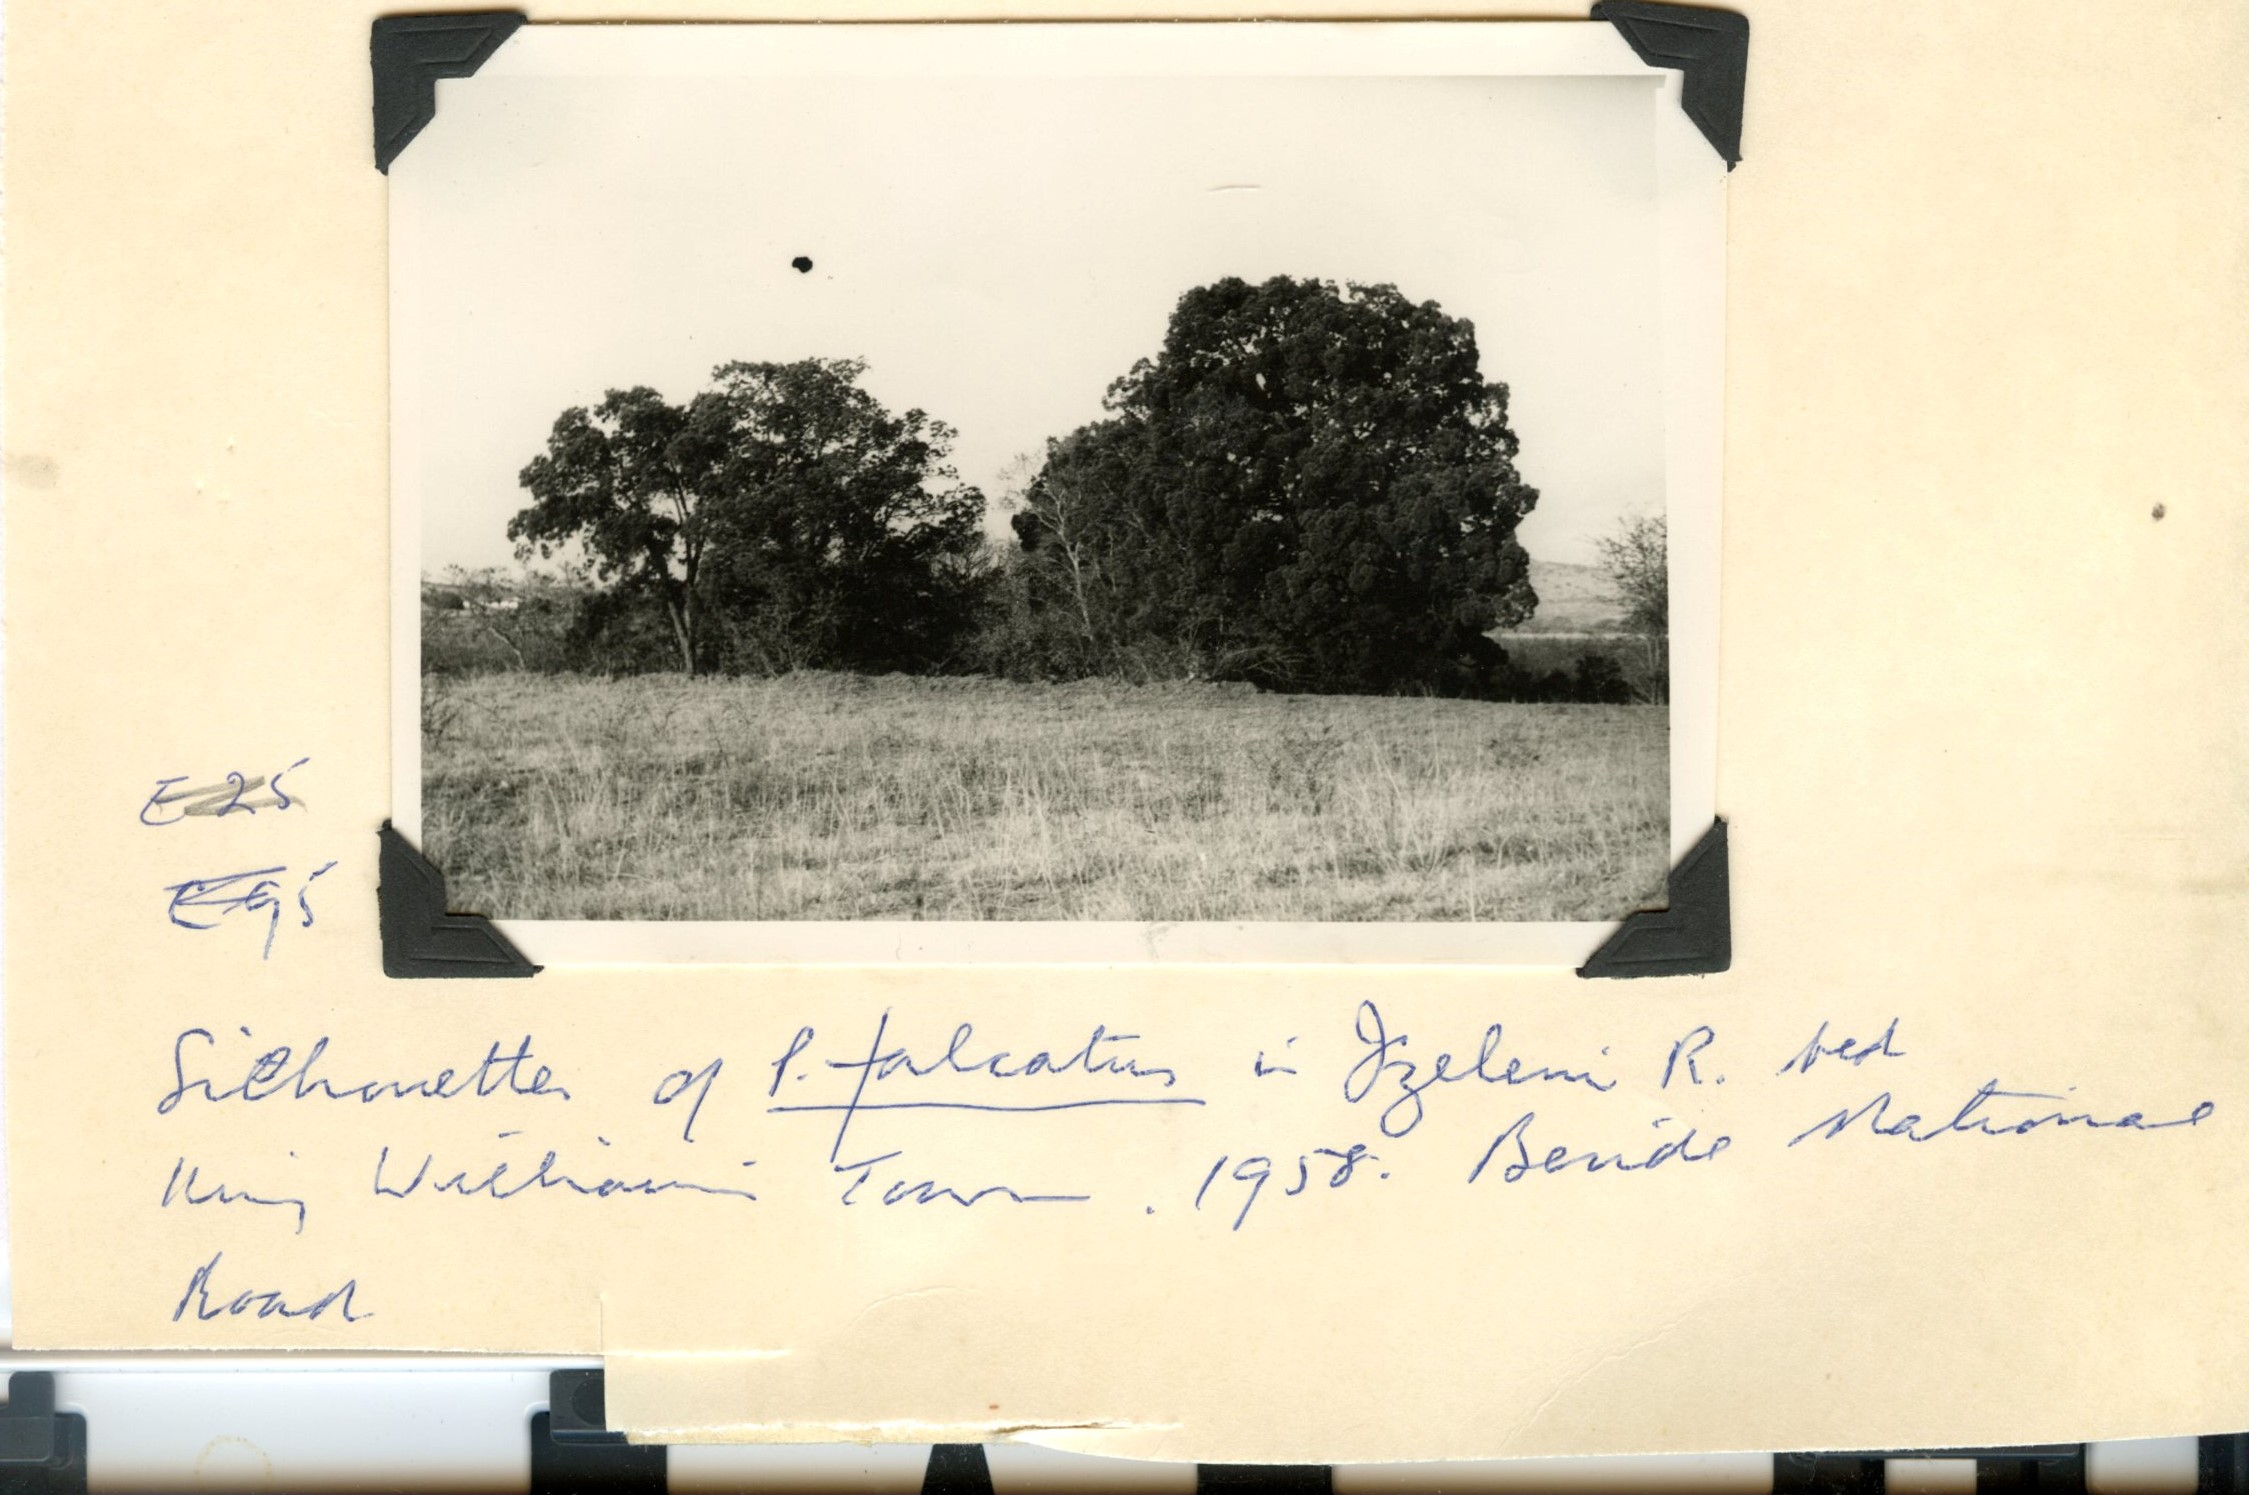 E25
E95
Silhouettes of P. falcatus in Izeleni R. bed
King Williams Town. 1958. Beside National
Road